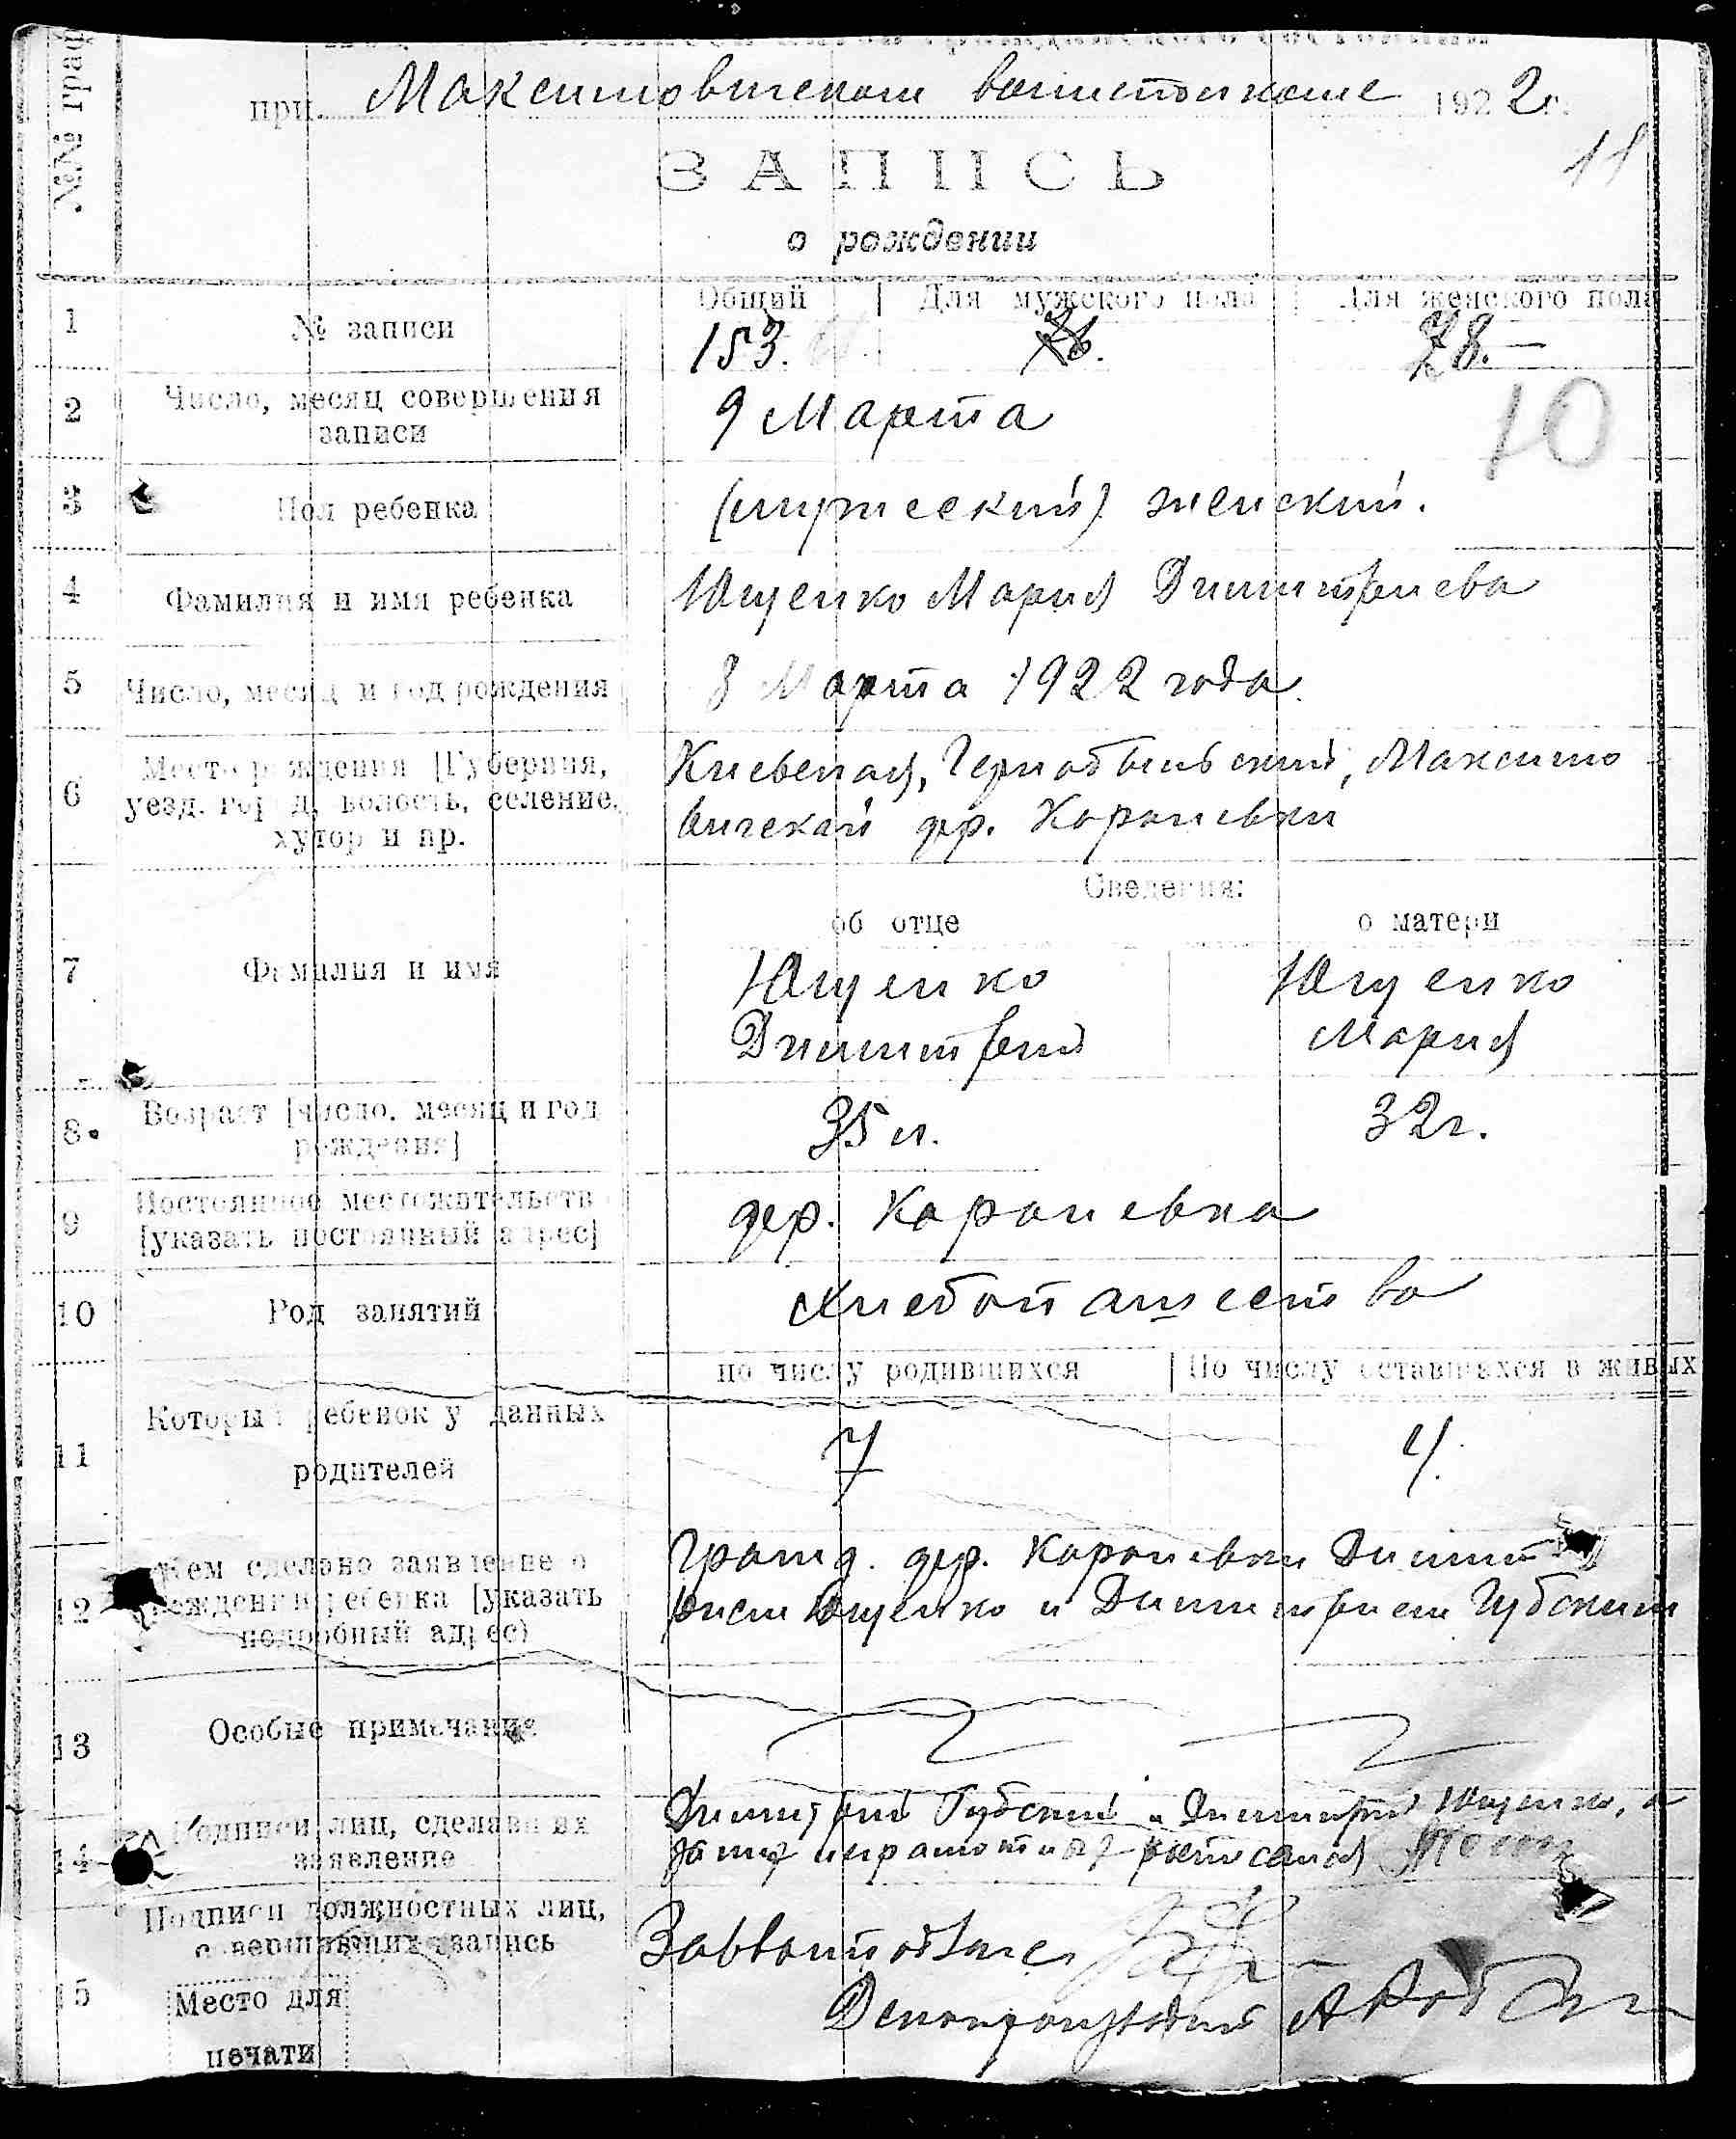 №№ граф
при Максимовичском волисполкоме 1922 г.
11
ЗАПИСЬ
о рождении
Общий | Для мужского пола | Для женского пола
1 № записи 153. 78.—
2 Число, месяц совершения
записи
9 Марта
10
3 Пол ребенка (мужеский) женский.
4 Фамилия и имя ребенка Ющенко Мария Димитриева
5 Число, месяц и год рождения 8 Марта 1922 года.
6 Место рождения [Губерния,
уезд, город, волость, селение,
хутор и пр.
Киевская, Чернобыльский, Максимо
вичской дер. Королевки
Сведения:
об отце о матери
7 Фамилия и имя Ющенко Ющенко
Димитрий Мария
8. Возраст [число, месяц и год
рождения]
35 л. 32 г.
9 Постоянное местожительств
[указать постоянный адрес]
дер. Королевка
10 Род занятий хлебопашество
по числу родившихся | По числу оставшихся в живых
11 Который ребенок у данных
родителей
7 4.
12 Кем сделано заявление о
рождении ребенка [указать
подробный адрес)
Гражд. дер. Королевки Димит
рием Ющенко и Димитрием Губским
13 Особые примечания
14 Подписи лиц, сделавших
заявление
Димитрий Губский и Димитрий Ющенко, а
за них неграмотных расписался
15 Подписи должностных лиц,
совершивших запись
Место для
печати
Делопроизводит